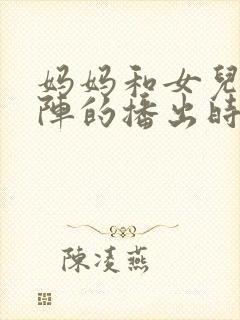 妈妈和女兒
陣的播出時
陳凌燕